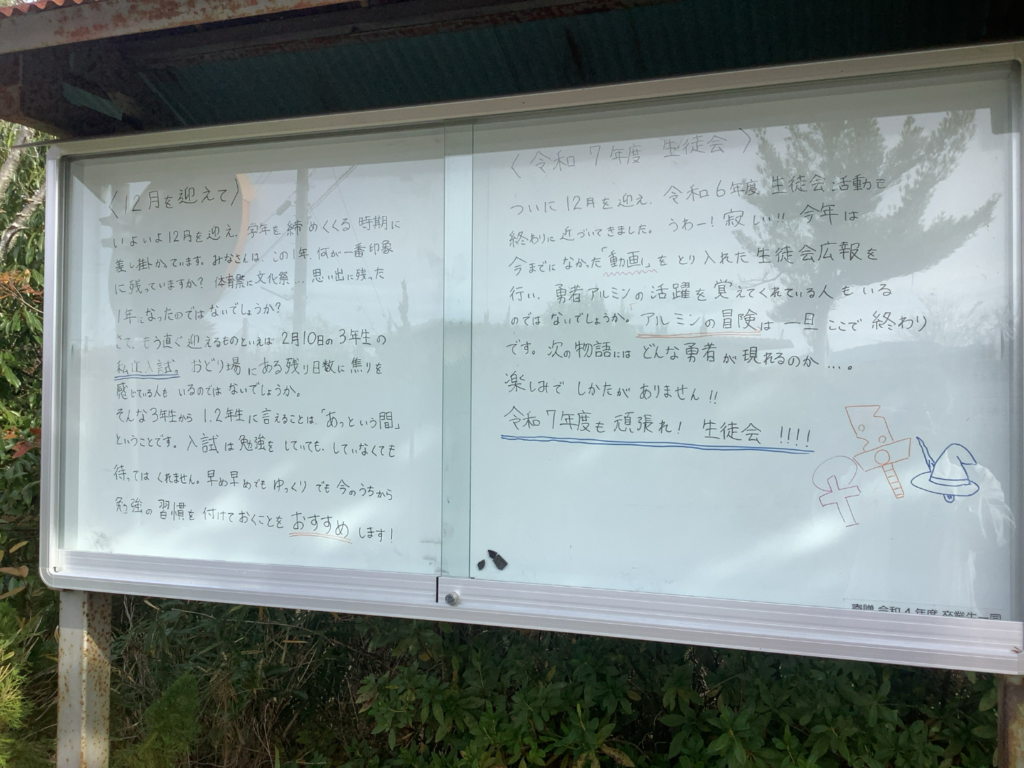 〈12月を迎えて〉
いよいよ12月を迎え、学年を締めくくる時期に
差し掛かっています。みなさんは、この1年、何が一番印象
に残っていますか？体育祭に文化祭…思い出に残った
1年になったのではないでしょうか？
さて、もう直ぐ迎えるものといえば2月10日の3年生の
私立入試。おどり場にある残り日数に焦りを
感じている人もいるのではないでしょうか。
そんな3年生から1.2年生に言えることは「あっという間」
ということです。入試は勉強をしていても、していなくても
待ってはくれません。早め早めでもゆっくりでも今のうちから
勉強の習慣を付けておくことをおすすめします！
〈令和7年度 生徒会〉
ついに12月を迎え、令和6年度生徒会活動も
終わりに近づいてきました。うわー！寂しい!! 今年は
今までになかった「動画」をとり入れた生徒会広報を
行い、勇者アルミンの活躍を覚えてくれている人もいる
のではないでしょうか。アルミンの冒険は一旦ここで終わり
です。次の物語にはどんな勇者が現れるのか…。
楽しみでしかたがありません!!
令和7年度も頑張れ！ 生徒会 !!!!
寄贈 令和4年度 卒業生一同